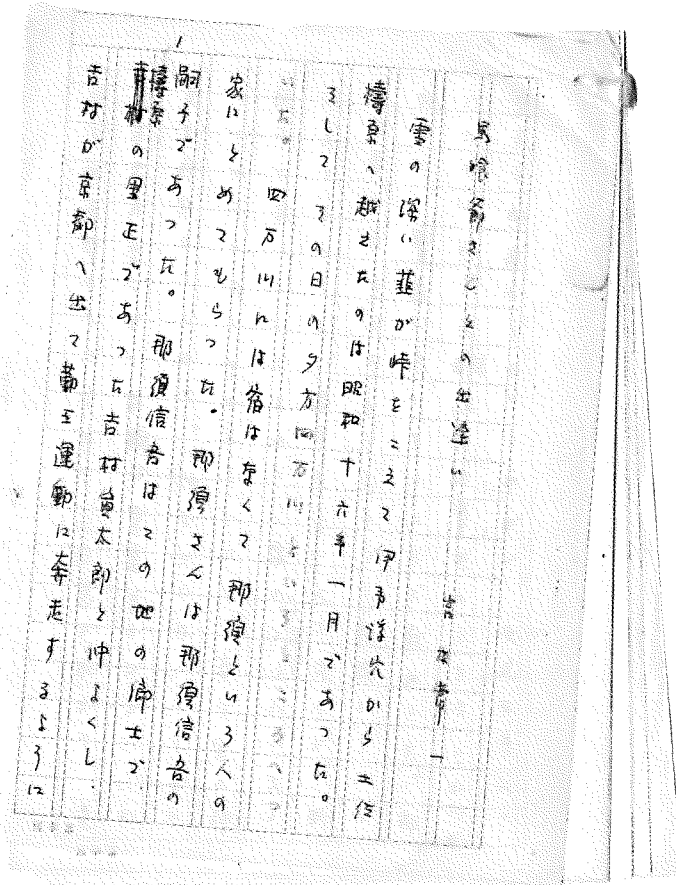 1
馬喰爺さんとの出逢い
宮本常一
雪の深い韮が峠をこえて伊予 から土佐
檮原へ越えたのは昭和十六年一月であった。
そして その日の夕方四万川というところへつ
いた。 四万川には宿はなくて 那須という人の
家にとめてもらった。 那須さんは那須信吾の
嗣子であった。 那須信吾はこの地の郷士で、
檮原村の里正であった吉村寅太郎と仲よくし、
吉村が京都へ出て勤王運動に奔走するように